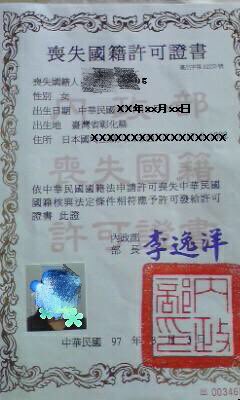 喪失國籍許可證書
喪失國籍人
性別 女
出生日期 中華民國XX年xx月xx日
出生地 臺灣省彰化縣
住所 日本國XXXXXXXXXXXXXXXXX
喪失國籍
許可證書
依中華民國國籍法申請許可喪失中華民國
國籍核與法定條件相符應予許可發給許可
證書 此證
內政部
部長 李逸洋
內政部印
中華民國 97 年 月 3 日
00346